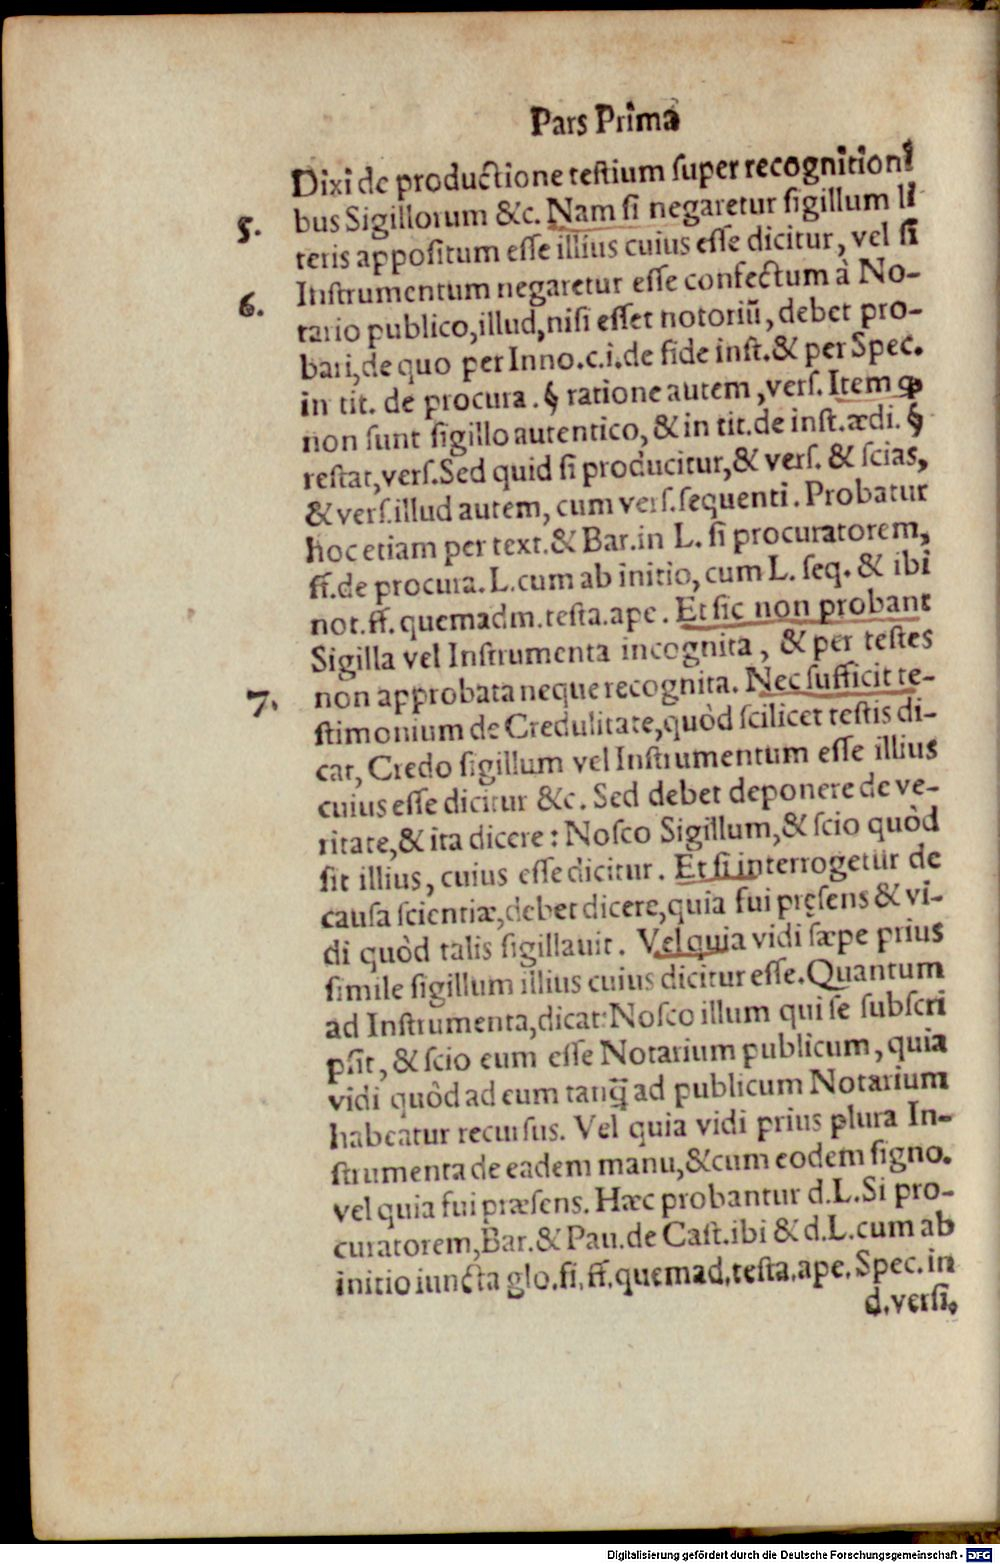 Pars Prima
Dixi de productione testium super recognitioni
5. bus Sigillorum &c. Nam si negaretur sigillum li
teris appositum esse illius cuius esse dicitur, vel si
6. Instrumentum negaretur esse confectum à No-
tario publico, illud, nisi esset notoriū, debet pro-
bari, de quo per Inno. c. i. de fide inst. & per Spec.
in tit. de procura. § ratione autem, vers. Item ꝙ
non sunt sigillo autentico, & in tit. de inst. ædi. §
restat, vers. Sed quid si producitur, & vers. & scias,
& vers. illud autem, cum vers. sequenti. Probatur
hoc etiam per text. & Bar. in L. si procuratorem,
ff. de procura. L. cum ab initio, cum L. seq. & ibi
not. ff. quemadm. testa. ape. Et sic non probant
Sigilla vel Instrumenta incognita, & per testes
7. non approbata neque recognita. Nec sufficit te-
stimonium de Credulitate, quòd scilicet testis di-
cat, Credo sigillum vel Instrumentum esse illius
cuius esse dicitur &c. Sed debet deponere de ve-
ritate, & ita dicere: Nosco Sigillum, & scio quòd
sit illius, cuius esse dicitur. Et si interrogetur de
causa scientiæ, debet dicere, quia fui pręsens & vi-
di quòd talis sigillauit. Vel quia vidi sæpe prius
simile sigillum illius cuius dicitur esse. Quantum
ad Instrumenta, dicat: Nosco illum qui se subscri
psit, & scio eum esse Notarium publicum, quia
vidi quòd ad eum tanq̃ ad publicum Notarium
habeatur recursus. Vel quia vidi prius plura In-
strumenta de eadem manu, & cum eodem signo.
vel quia fui præsens. Hæc probantur d. L. Si pro-
curatorem, Bar. & Pau. de Cast. ibi & d. L. cum ab
initio iuncta glo. fi. ff. quemad. testa. ape. Spec. in
d. versi.
Digitalisierung gefördert durch die Deutsche Forschungsgemeinschaft - DFG